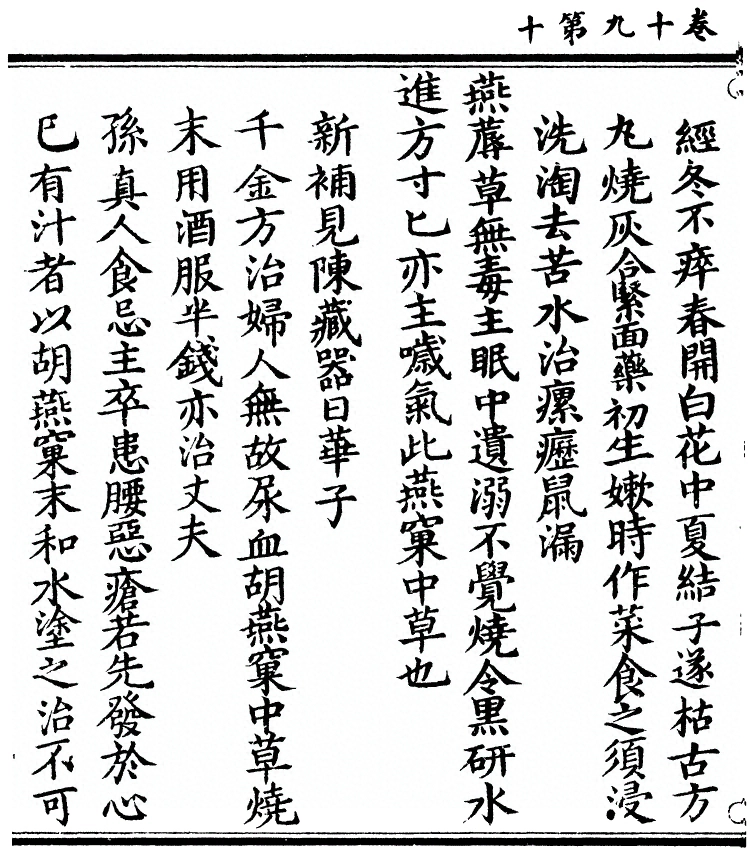 卷十九第十
經冬不瘁春開白花中夏結子遂枯古方
九燒灰合緊面藥初生嫩時作菜食之須浸
洗淘去苦水治瘰癧鼠漏
燕蓐草無毒主眠中遺溺不覺燒令黑研水
進方寸匕亦主噦氣此燕窠中草也
新補見陳藏器日華子
千金方治婦人無故尿血胡燕窠中草燒
末用酒服半錢亦治丈夫
孫真人食忌主卒患腰惡瘡若先發於心
巳有汁者以胡燕窠末和水塗之治不可